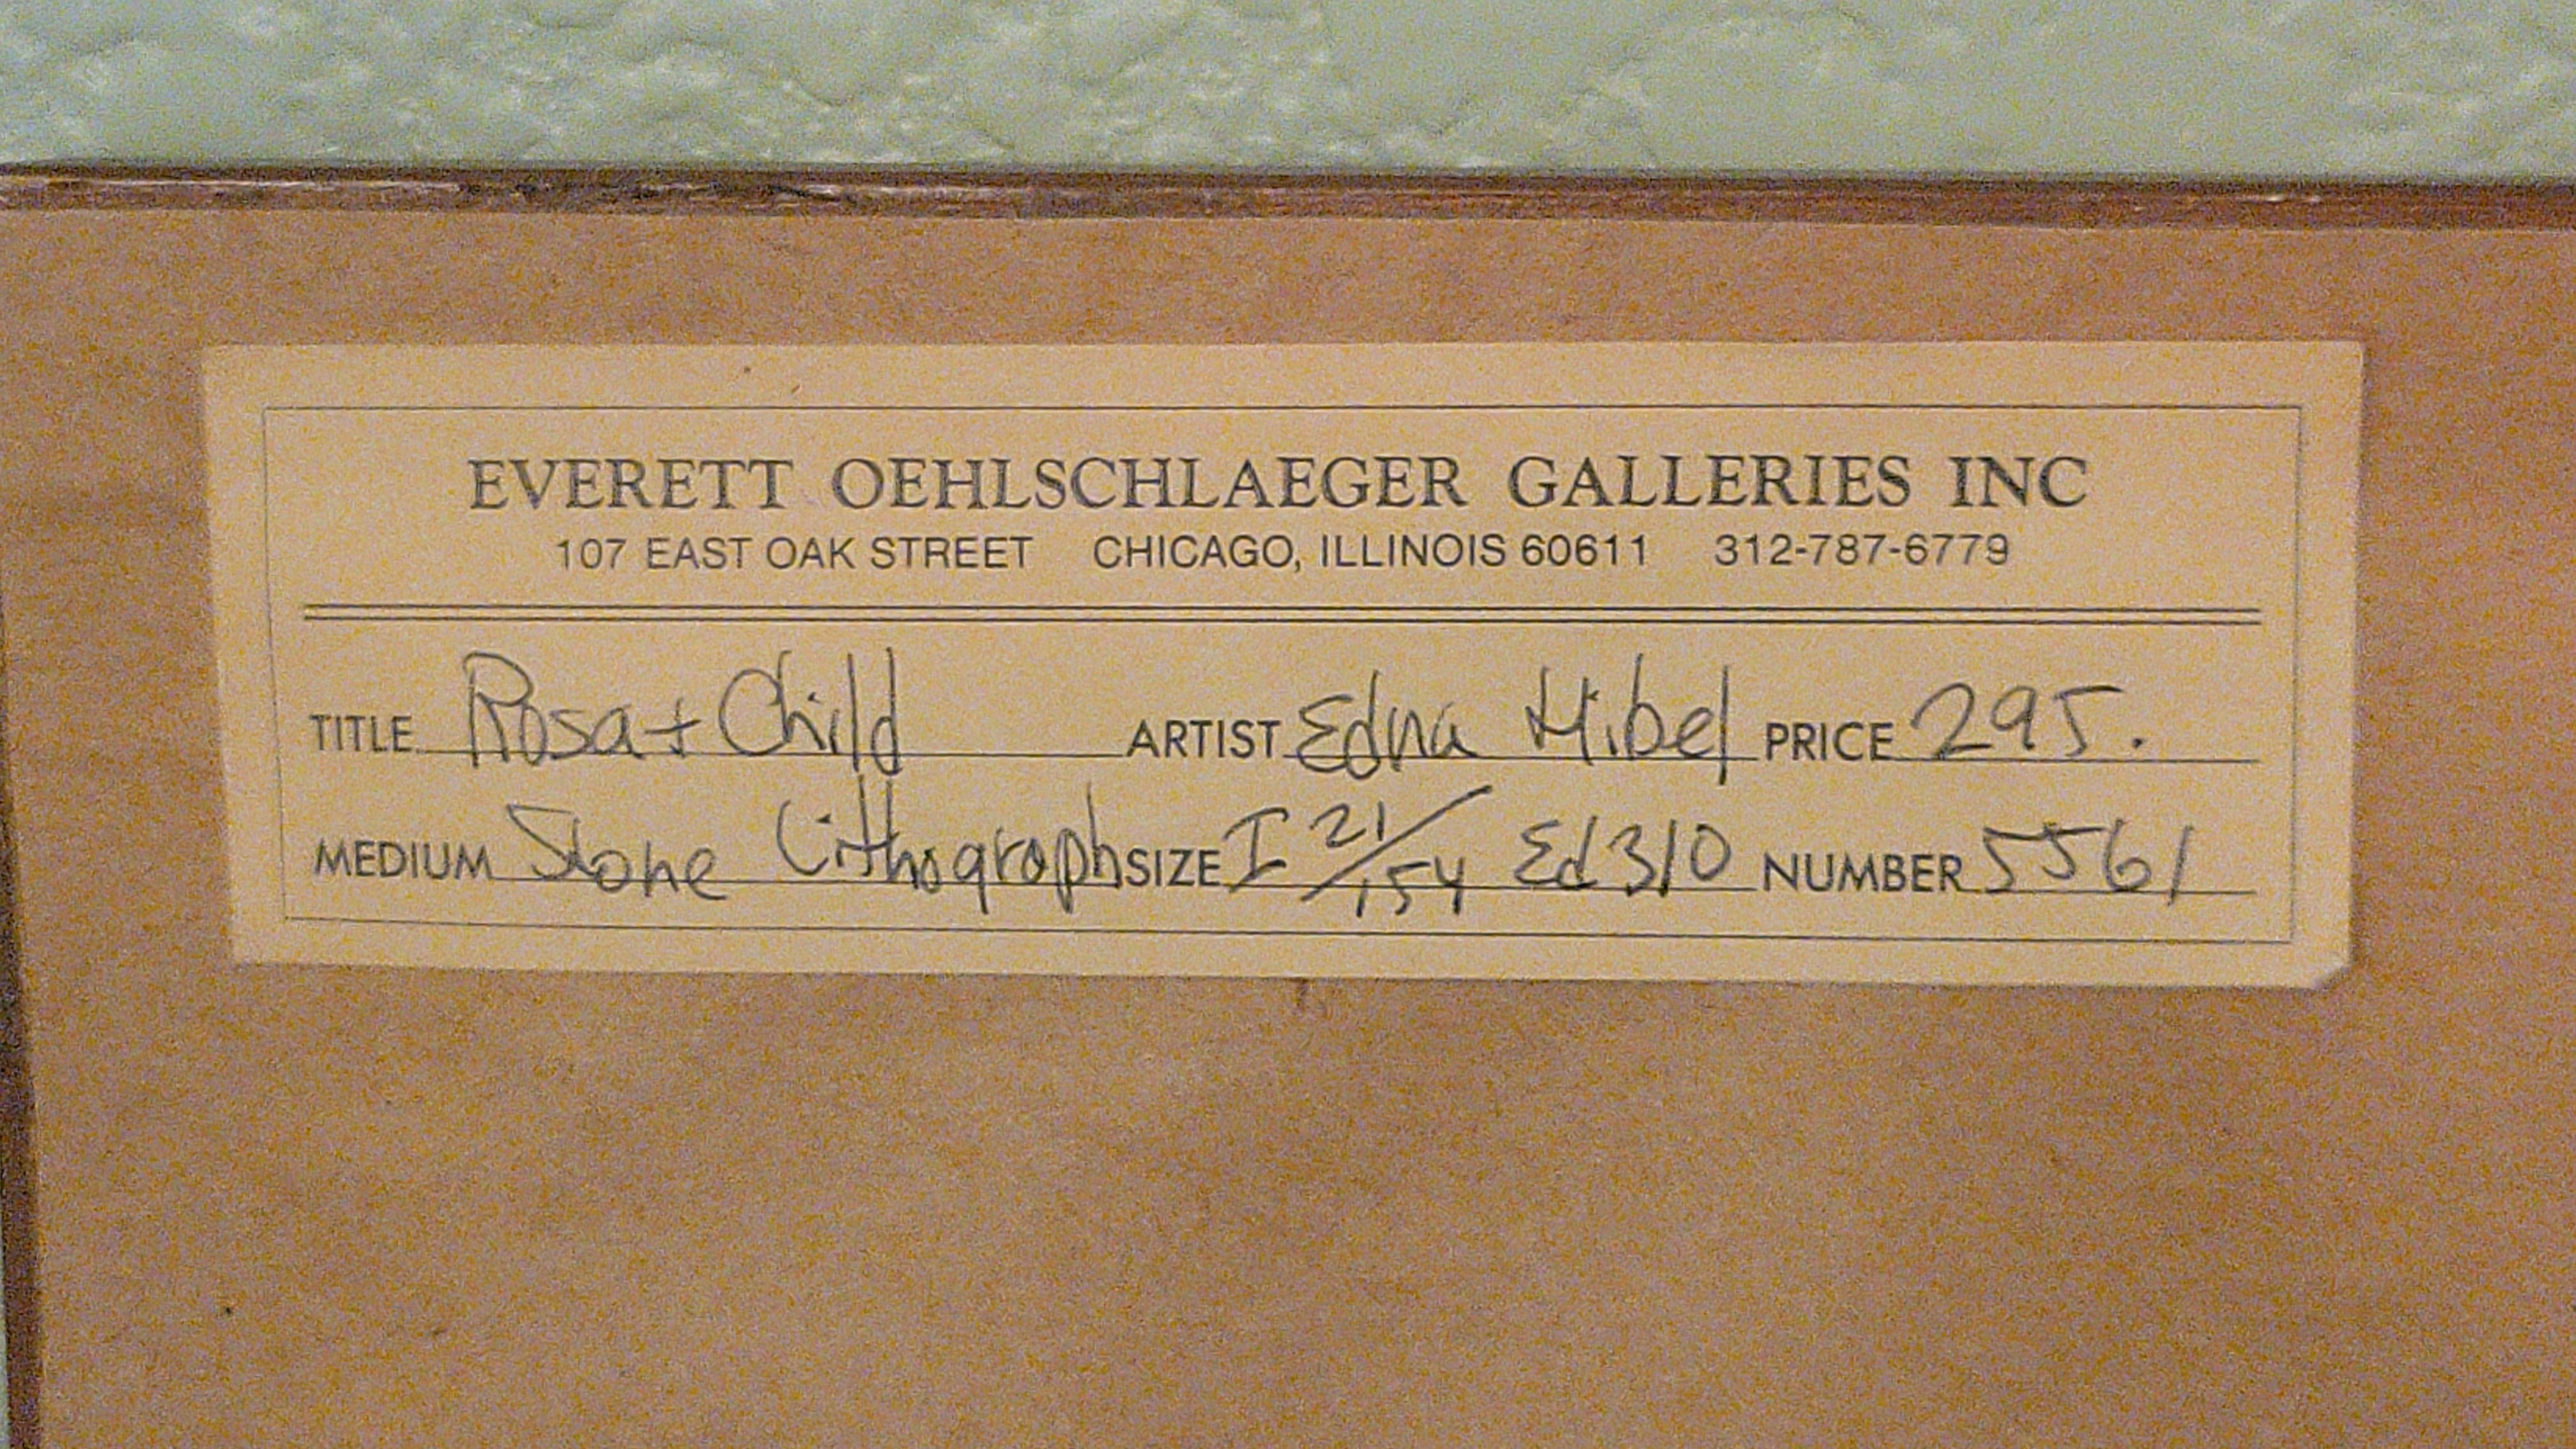 EVERETT OEHLSCHLAEGER GALLERIES INC
107 EAST OAK STREET CHICAGO, ILLINOIS 60611 312-787-6779
TITLE Rosa + Child ARTIST Edna Hibel PRICE 295.
MEDIUM Stone Lithograph SIZE I 21/154 Ed 310 NUMBER 5561